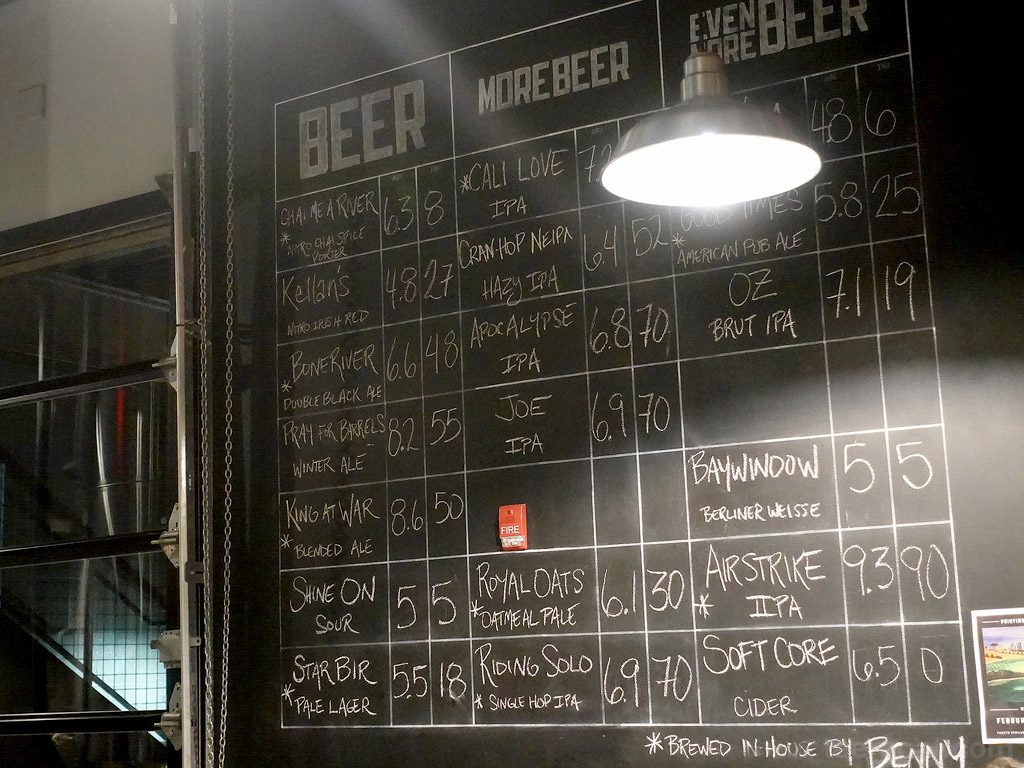 BEER
CHAI ME A RIVER 6.3 8
* NITRO CHAI SPICE
PORTER
Kellan's 4.8 27
NITRO IRISH RED
BONE RIVER 6.6 48
* DOUBLE BLACK ALE
PRAY FOR BARRELS 8.2 55
WINTER ALE
KING AT WAR 8.6 50
* BLENDED ALE
SHINE ON 5 5
SOUR
STAR BIR 5.5 18
* PALE LAGER
MORE BEER
*CALI LOVE
IPA
CRAN-HOP NEIPA 6.4 52
HAZY IPA
APOCALYPSE 6.8 70
IPA
JOE 6.9 70
IPA
FIRE
ROYAL OATS 6.1 30
* OATMEAL PALE
RIDING SOLO 6.9 70
* SINGLE HOP IPA
EVEN
MORE BEER
48 6
TIMES 5.8 25
* AMERICAN PUB ALE
OZ 7.1 19
BRUT IPA
BAYWINDOW 5 5
BERLINER WEISSE
AIRSTRIKE 9.3 90
* IIPA
SOFT CORE 6.5 0
CIDER
*BREWED IN-HOUSE BY BENNY